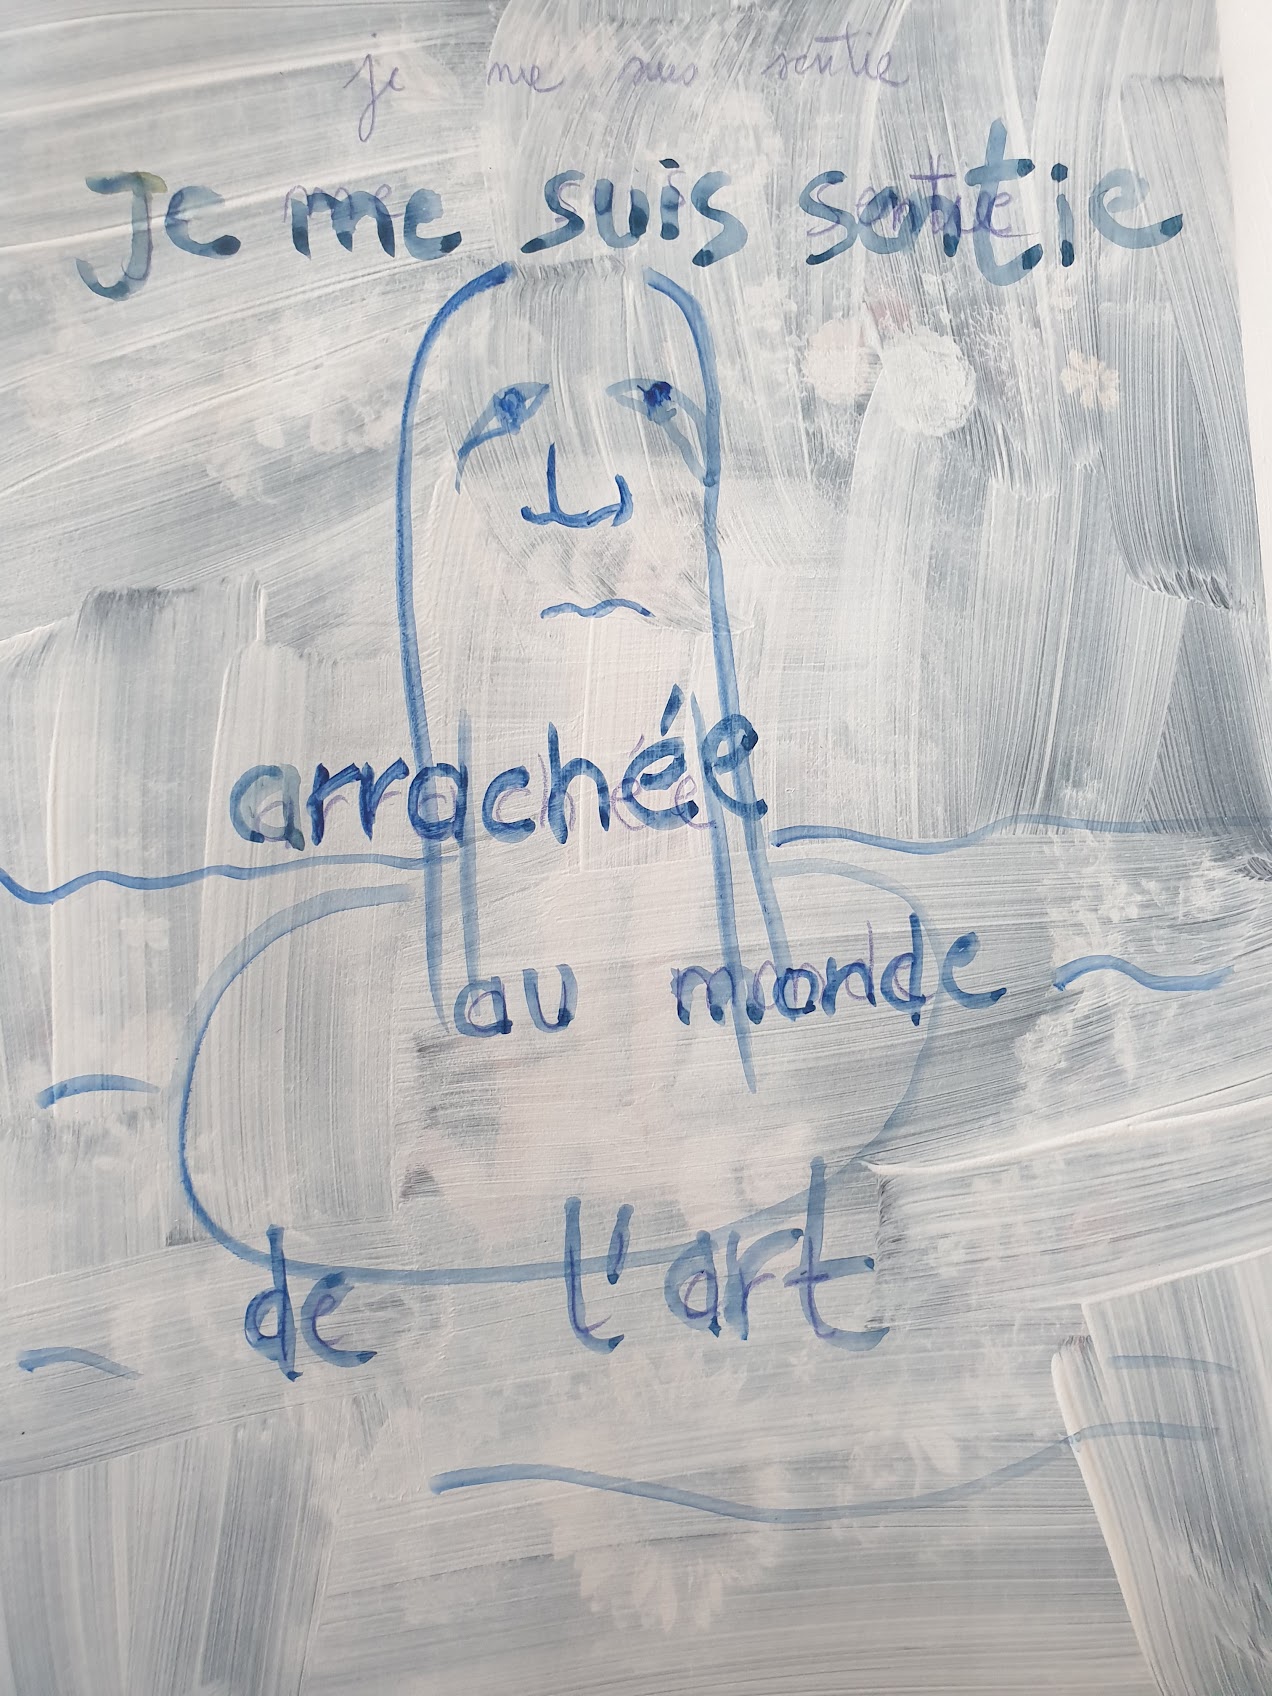 je me suis sentie
Je me suis sentie
arrachée
au monde
de l'art